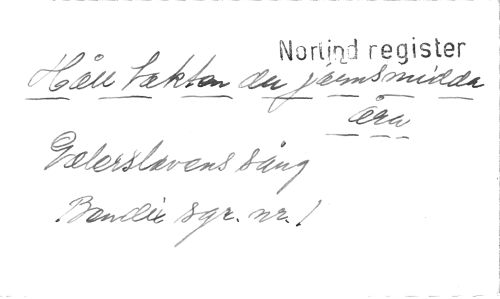 Nortind register
Håll takten du järnsmidda
åra
Galerslavens sång
Bendix sgr. nr. 1